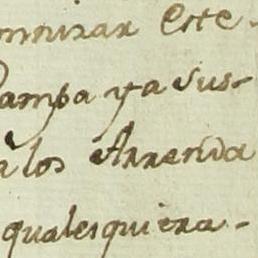 mnizar este
Pampa y a sus-
a los Arrenda
qualesquiera-